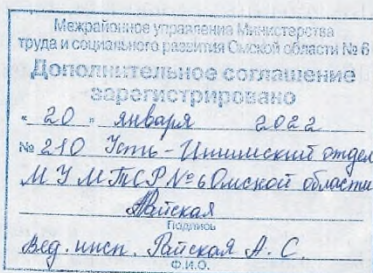 Межрайонное управление Министерства
труда и социального развития Омской области № 6
Дополнительное соглашение
зарегистрировано
« 20 » января 2022
№ 210 Усть-Ишимский отдел
МУМТСР №6 Омской области
Райская
Подпись
Вед. инсп. Райская А. С.
Ф.И.О.